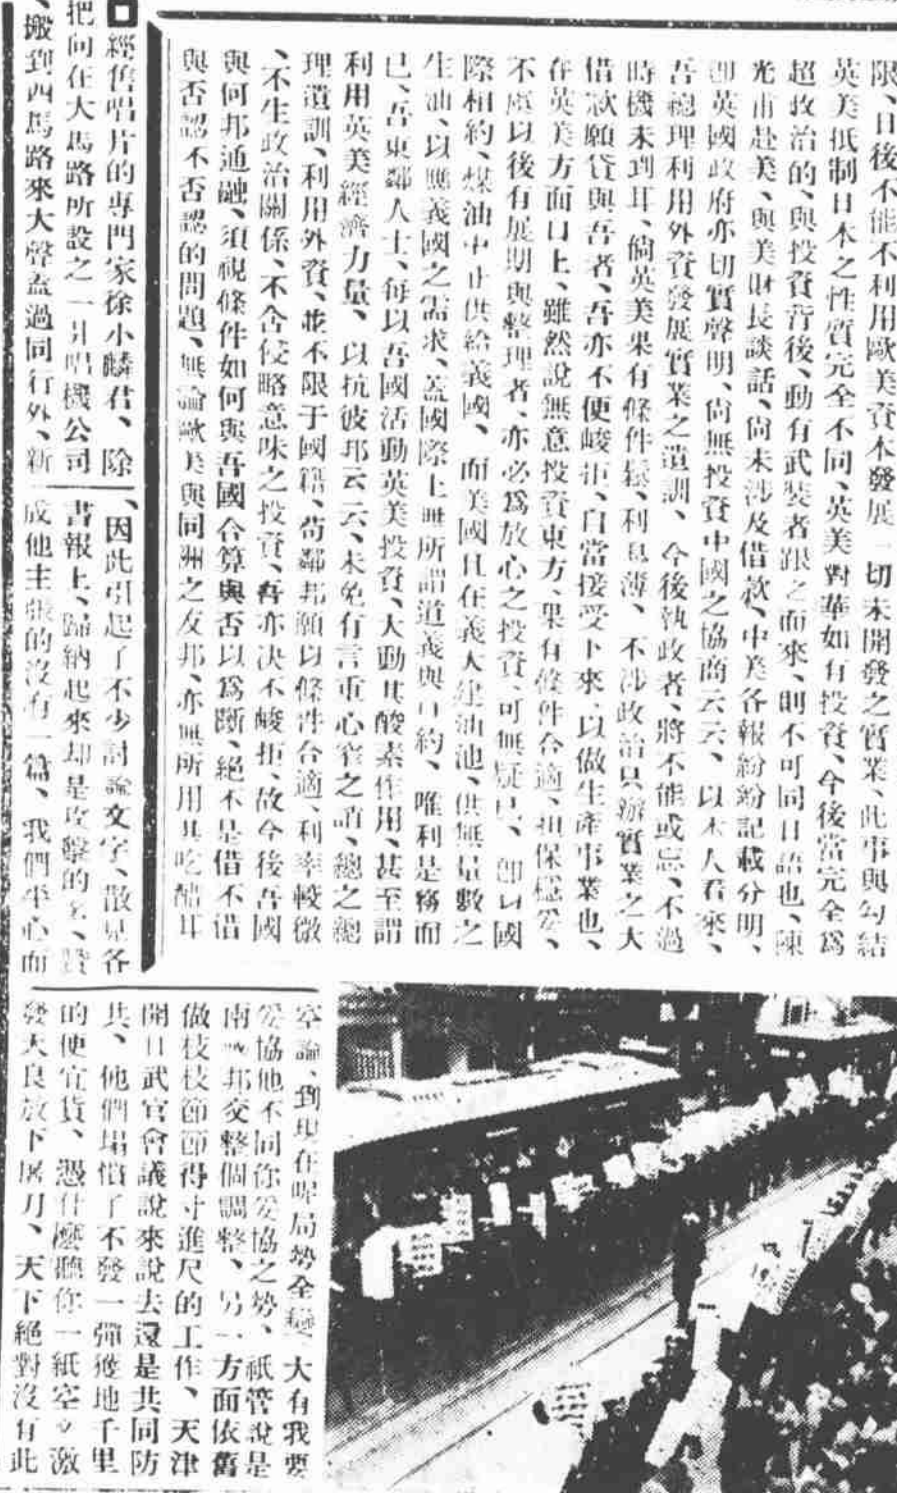 限、日後不能不利用歐美資本發展一切未開發之實業、此事與勾結
英美抵制日本之性質完全不同、英美對華如有投資、今後當完全爲
超政治的、與投資背後、動有武裝者跟之而來、則不可同日語也、陳
光甫赴美、與美財長談話、尙未涉及借款、中美各報紛紛記載分明、
卽英國政府亦切實聲明、尙無投資中國之協商云云、以本人看來、
吾總理利用外資發展實業之遺訓、今後執政者、將不能或忘、不過
時機未到耳、倘英美果有條件鬆、利息薄、不涉政治只辦實業之大
借款願貸與吾者、吾亦不便峻拒、自當接受下來、以做生產事業也、
在英美方面口上、雖然說無意投資東方、果有條件合適、担保穩妥、
不慮以後有展期與整理者、亦必爲放心之投資、可無疑已、卽以國
際相約、煤油中止供給義國、而美國且在義大建油池、供無量數之
生油、以應義國之需求、蓋國際上無所謂道義與口約、唯利是務而
已、吾東鄰人士、每以吾國活動英美投資、大動其酸素作用、甚至謂
利用英美經濟力量、以抗彼邦云云、未免有言重心窄之誚、總之總
理遺訓、利用外資、並不限于國籍、苟鄰邦願以條件合適、利率較微
、不生政治關係、不含侵略意味之投資、吾亦决不峻拒、故今後吾國
與何邦通融、須視條件如何與吾國合算與否以爲斷、絕不是借不借
與否認不否認的問題、無論歐美與同洲之友邦、亦無所用其吃醋耳
經售唱片的專門家徐小麟君、除
把向在大馬路所設之一昇唱機公司
、搬到四馬路來大聲蓋過同行外、新
、因此引起了不少討論文字、散見各
書報上、歸納起來却是攻擊的多、贊
成他主張的沒有一篇、我們平心而
空論、到現在呢局勢全變、大有我要
妥協他不同你妥協之勢、祇管說是
兩邦交整個調整、另一方面依舊
做枝枝節節得寸進尺的工作、天津
開日武官會議說來說去還是共同防
共、他們塌慣了不發一彈獲地千里
的便宜貨、憑什麼聽你一紙空文激
發天良放下屠刀、天下絕對沒有此